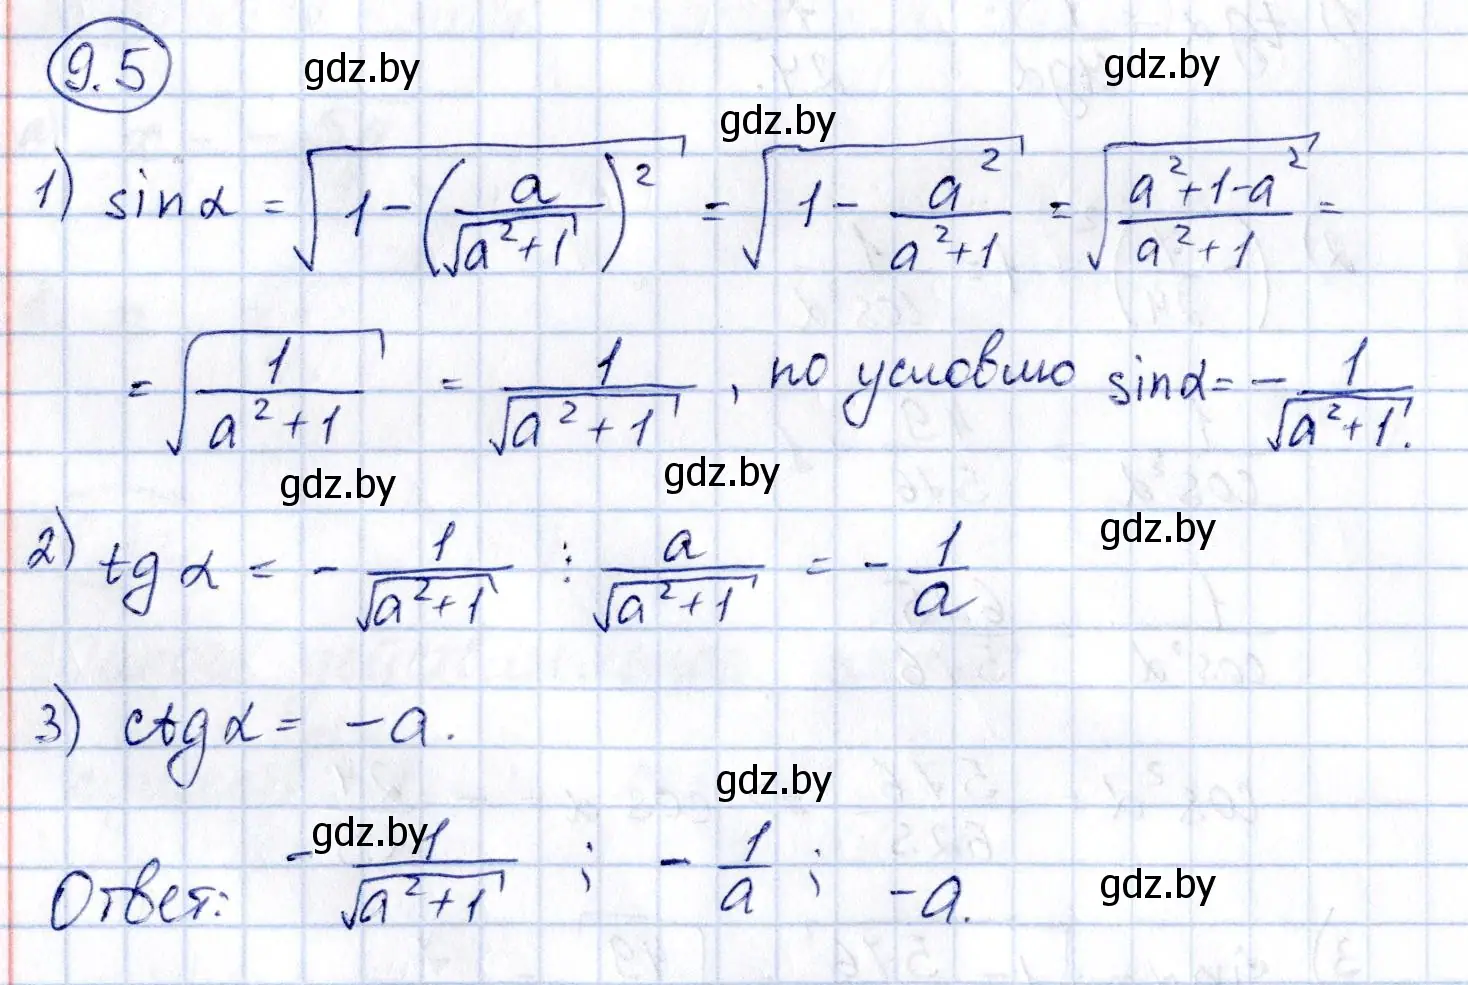 9.5
gdz.by gdz.by
gdz.by
1) sin α = √(1 − (a/√(a²+1))²) = √(1 − a²/(a²+1)) = √((a²+1−a²)/(a²+1)) =
= √(1/(a²+1)) = 1/√(a²+1), по условию sin α = − 1/√(a²+1).
gdz.by gdz.by
gdz.by
2) tg α = − 1/√(a²+1) : a/√(a²+1) = − 1/a
3) ctg α = −a.
gdz.by
gdz.by
Ответ: − 1/√(a²+1) ; − 1/a ; −a.
gdz.by